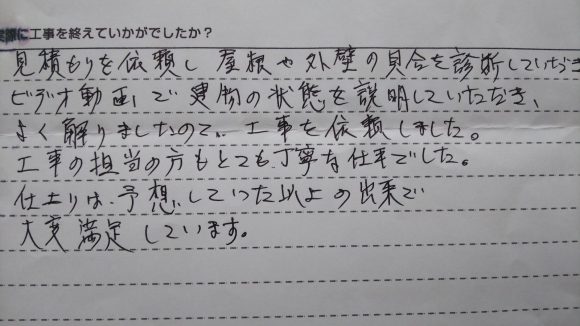 実際に工事を終えていかがでしたか？
見積もりを依頼し屋根や外壁の具合を診断していただき
ビデオ動画で建物の状態を説明していただき、
よく解りましたので、工事を依頼しました。
工事の担当の方もとても丁寧な仕事でした。
仕上りは、予想していた以上の出来で
大変満足しています。